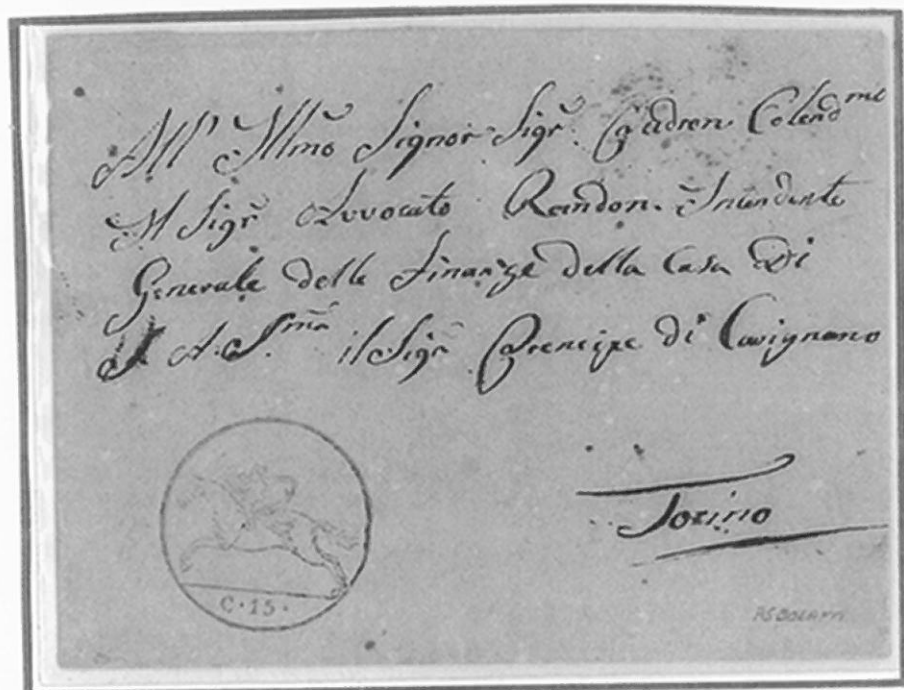 All' Illmo Signor Sigr. Padron Colendmo
Il Sigr Avvocato Randon. Intendente
Generale delle Finanze della Casa Di
S. A. S.ma il Sigr Prencipe di Carignano
Torino
C·15·